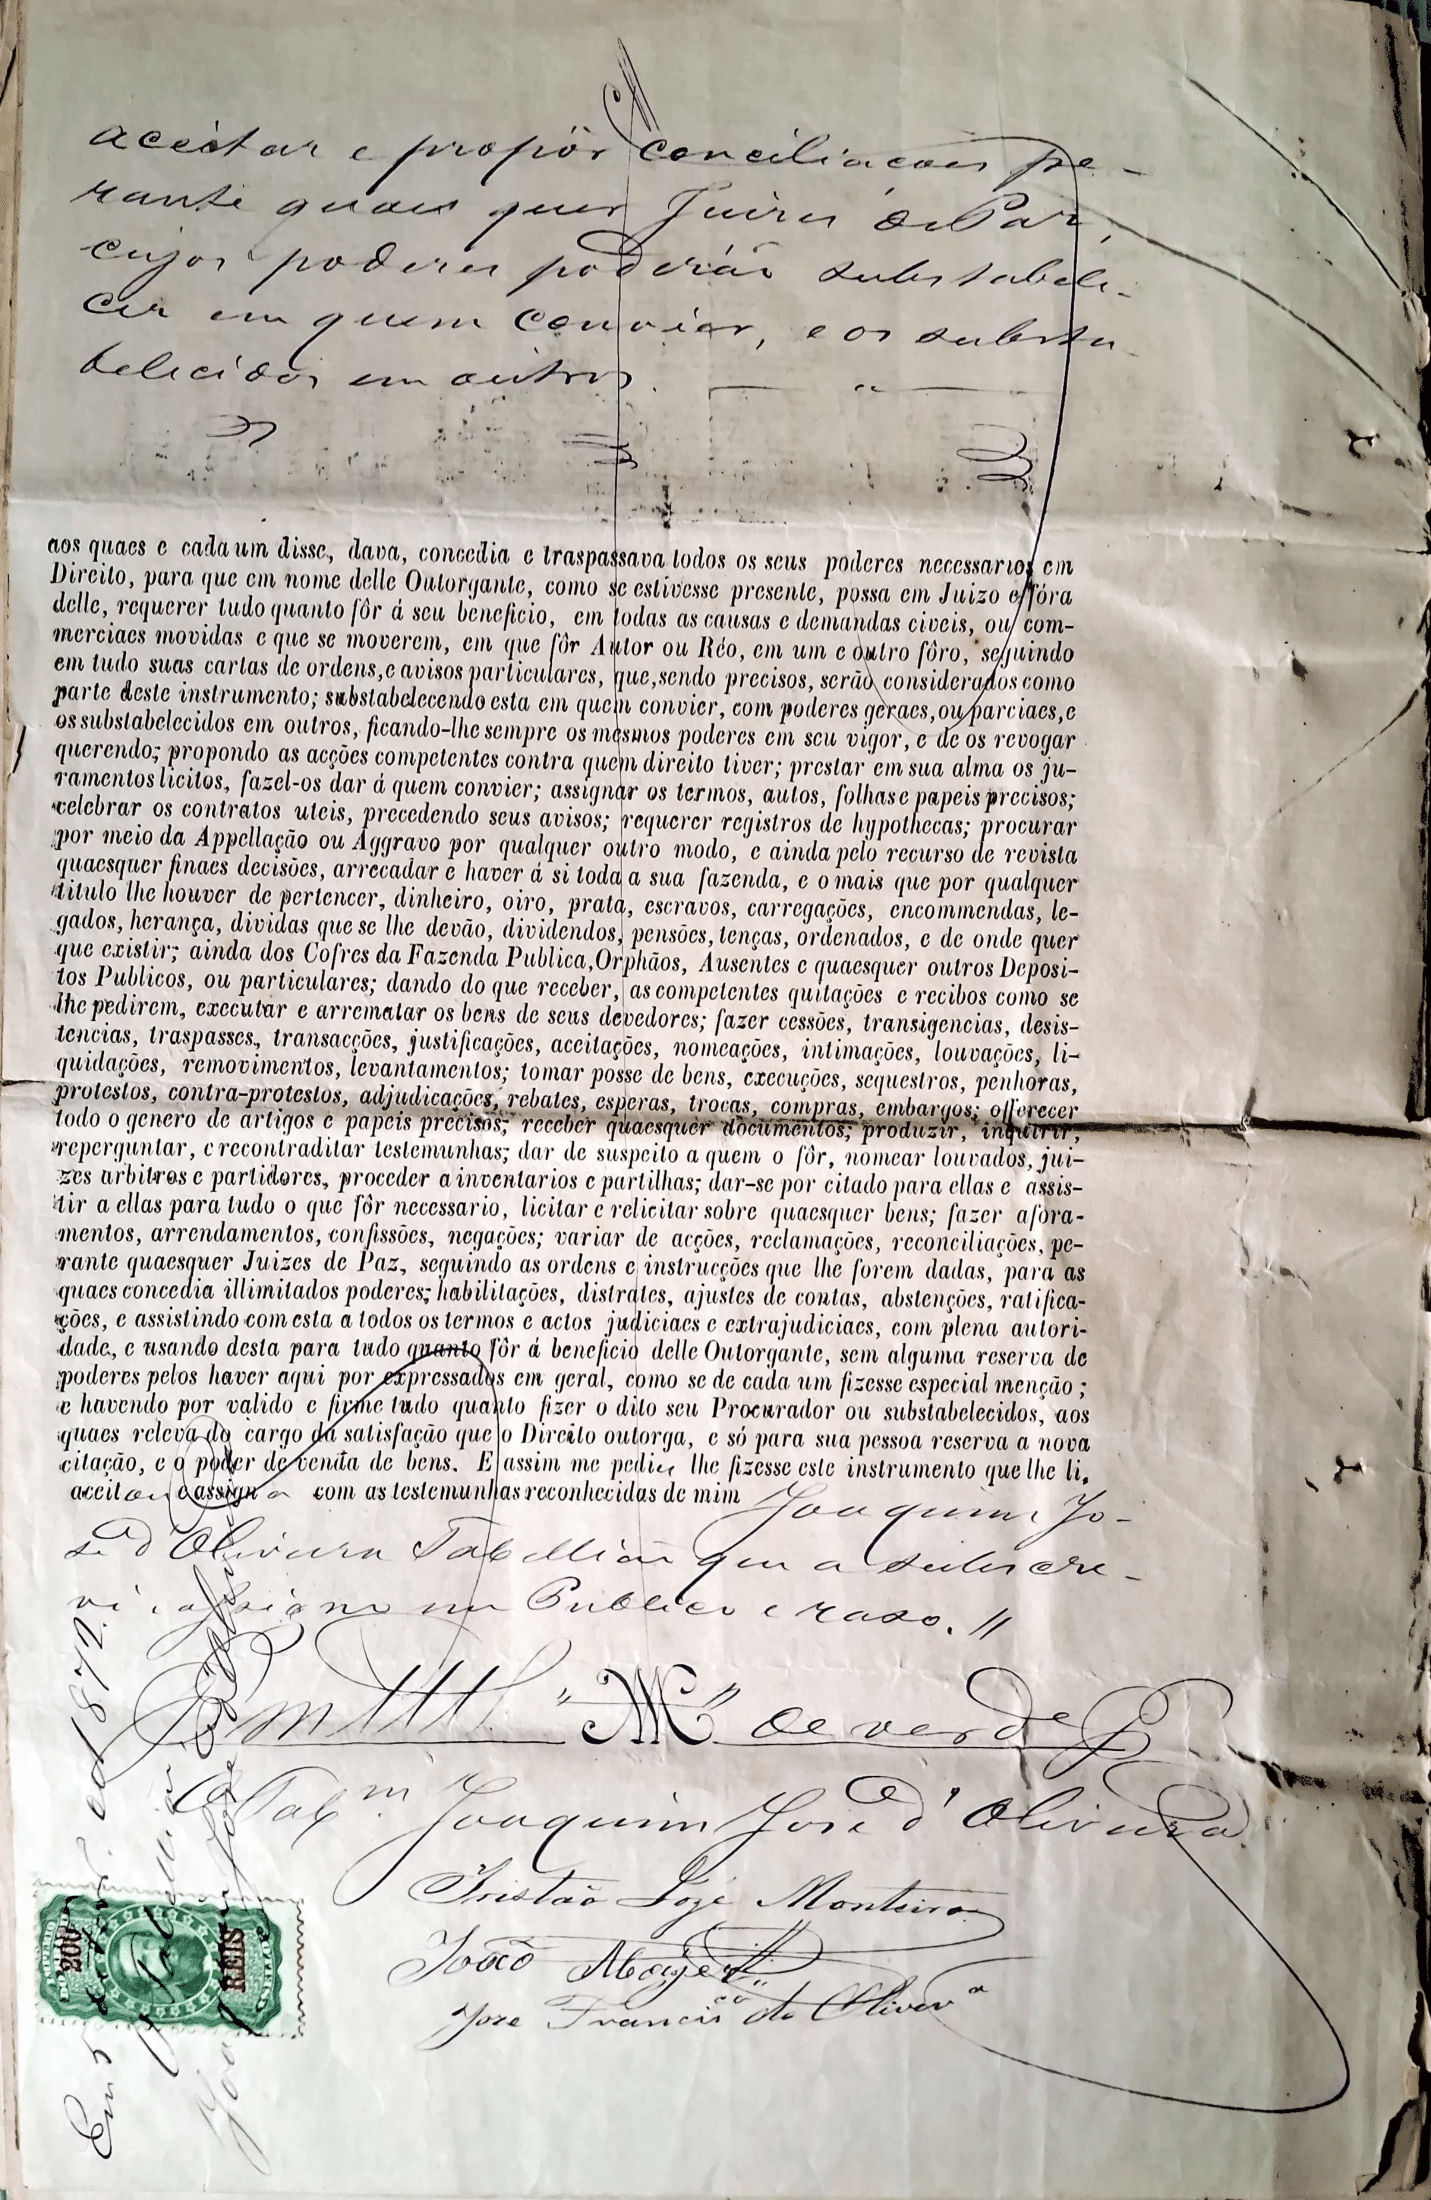 aceitar e propôr conciliacoes pe-
rante quaes quer Juizes de Paz,
cujos poderes poderáõ substabele-
cer em quem convier, e os substa
belecidos em outros.
aos quaes e cada um disse, dava, concedia e traspassava todos os seus poderes necessarios em
Direito, para que em nome delle Outorgante, como se estivesse presente, possa em Juizo e fóra
delle, requerer tudo quanto fôr á seu beneficio, em todas as causas e demandas civeis, ou com-
merciaes movidas e que se moverem, em que fôr Autor ou Réo, em um e outro fôro, seguindo
em tudo suas cartas de ordens, e avisos particulares, que, sendo precisos, serão considerados como
parte deste instrumento; substabelecendo esta em quem convier, com poderes geraes, ou parciaes, e
os substabelecidos em outros, ficando-lhe sempre os mesmos poderes em seu vigor, e de os revogar
querendo; propondo as acções competentes contra quem direito tiver; prestar em sua alma os ju-
ramentos licitos, fazel-os dar á quem convier; assignar os termos, autos, folhas e papeis precisos;
celebrar os contratos uteis, precedendo seus avisos; requerer registros de hypothecas; procurar
por meio da Appellação ou Aggravo por qualquer outro modo, e ainda pelo recurso de revista
quaesquer finaes decisões, arrecadar e haver á si toda a sua fazenda, e o mais que por qualquer
titulo lhe houver de pertencer, dinheiro, oiro, prata, escravos, carregações, encommendas, le-
gados, herança, dividas que se lhe devão, dividendos, pensões, tenças, ordenados, e de onde quer
que existir; ainda dos Cofres da Fazenda Publica, Orphãos, Ausentes e quaesquer outros Deposi-
tos Publicos, ou particulares; dando do que receber, as competentes quitações e recibos como se
lhe pedirem, executar e arrematar os bens de seus devedores; fazer cessões, transigencias, desis-
tencias, traspasses, transacções, justificações, aceitações, nomeações, intimações, louvações, li-
quidações, removimentos, levantamentos; tomar posse de bens, execuções, sequestros, penhoras,
protestos, contra-protestos, adjudicações, rebates, esperas, trocas, compras, embargos; offerecer
todo o genero de artigos e papeis precisos; receber quaesquer documentos; produzir, inquirir,
reperguntar, e recontraditar testemunhas; dar de suspeito a quem o fôr, nomear louvados, jui-
zes arbitros e partidores, proceder a inventarios e partilhas; dar-se por citado para ellas e assis-
tir a ellas para tudo o que fôr necessario, licitar e relicitar sobre quaesquer bens; fazer afora-
mentos, arrendamentos, confissões, negações; variar de acções, reclamações, reconciliações, pe-
rante quaesquer Juizes de Paz, seguindo as ordens e instrucções que lhe forem dadas, para as
quaes concedia illimitados poderes; habilitações, distrates, ajustes de contas, abstenções, ratifica-
ções, e assistindo com esta a todos os termos e actos judiciaes e extrajudiciaes, com plena autori-
dade, e usando desta para tudo quanto fôr á beneficio delle Outorgante, sem alguma reserva de
poderes pelos haver aqui por expressados em geral, como se de cada um fizesse especial menção;
e havendo por valido e firme tudo quanto fizer o dito seu Procurador ou substabelecidos, aos
quaes releva do cargo da satisfação que o Direito outorga, e só para sua pessoa reserva a nova
citação, e o poder de venda de bens. E assim me pediu lhe fizesse este instrumento que lhe li,
aceitou e assigna com as testemunhas reconhecidas de mim Joaquim Jo-
sé d'Oliveira Tabellião que a subscre-
vi e assigno em Publico e raso. //
Em "M" de verde
O Tabm Joaquim José d'Oliveira
Tristão José Monteiro
João
Jose Francisco de Oliveira
Em 5 de 1872.
O Tabellião
Joaq José d'Oliveira
200
REIS